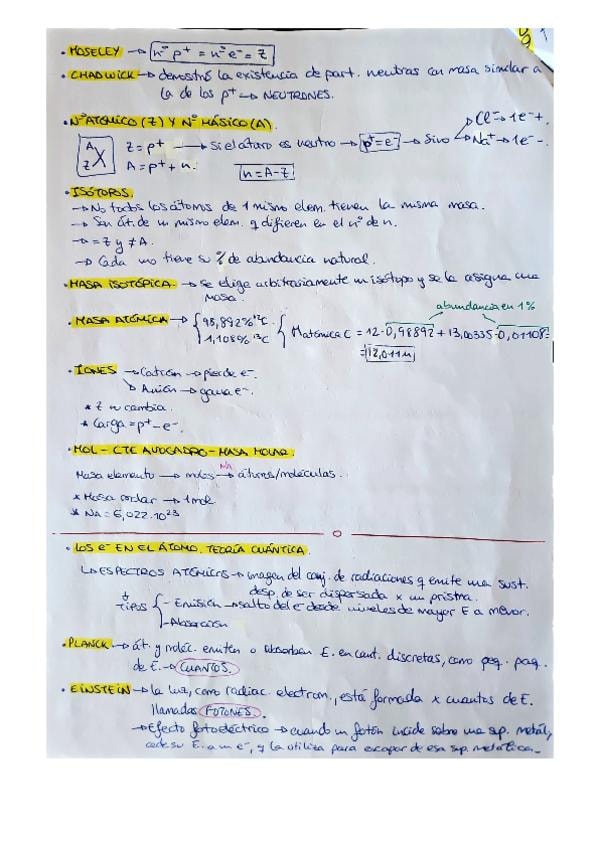 · MOSELEY → nº p+ = nº e- = Z
· CHADWICK → demostró la existencia de part. neutras con masa similar a
la de los p+ → NEUTRONES.
· Nº ATÓMICO (Z) Y Nº MÁSICO (A).
Z = p+ → Si el átomo es neutro → p+ = e- → Si no → Cl- → 1e- +.
→ Na+ → 1e- -.
A Z X A = p+ + n. n = A - Z
· ISÓTOPOS.
→ No todos los átomos de 1 mismo elem. tienen la misma masa.
→ Son át. de un mismo elem. q difieren en el nº de n.
→ = Z y ≠ A.
→ Cada uno tiene su % de abundancia natural.
· MASA ISOTÓPICA. → Se elige arbitrariamente un isótopo y se le asigna una
masa.
abundancia en 1%
· MASA ATÓMICA → { 98,892% 12C { M atómica C = 12 · 0,98892 + 13,00335 · 0,01108 =
1,108% 13C = 12,011 u
· IONES → Catión → pierde e-.
→ Anión → gana e-.
* Z no cambia.
* Carga = p+ - e-.
· MOL - CTE AVOGADRO - MASA MOLAR.
Masa elemento → moles → NA átomos/moléculas.
* Masa molar → 1 mol
* NA = 6,022 · 10 23
· LOS e- EN EL ÁTOMO. TEORÍA CUÁNTICA.
↳ ESPECTROS ATÓMICOS → imagen del conj. de radiaciones q emite una sust.
desp. de ser dispersada x un prisma.
TIPOS { - Emisión → salto del e- desde niveles de mayor E a menor.
- Absorción
· PLANCK → át. y moléc. emiten o absorben E. en cant. discretas, como peq. paq.
de E. → CUANTOS.
· EINSTEIN → la luz, como radiac. electrom., está formada x cuantos de E.
llamados FOTONES.
→ Efecto fotoeléctrico → cuando un fotón incide sobre una sup. metál,
cede su E. a un e-, y la utiliza para escapar de esa sup. metálica.